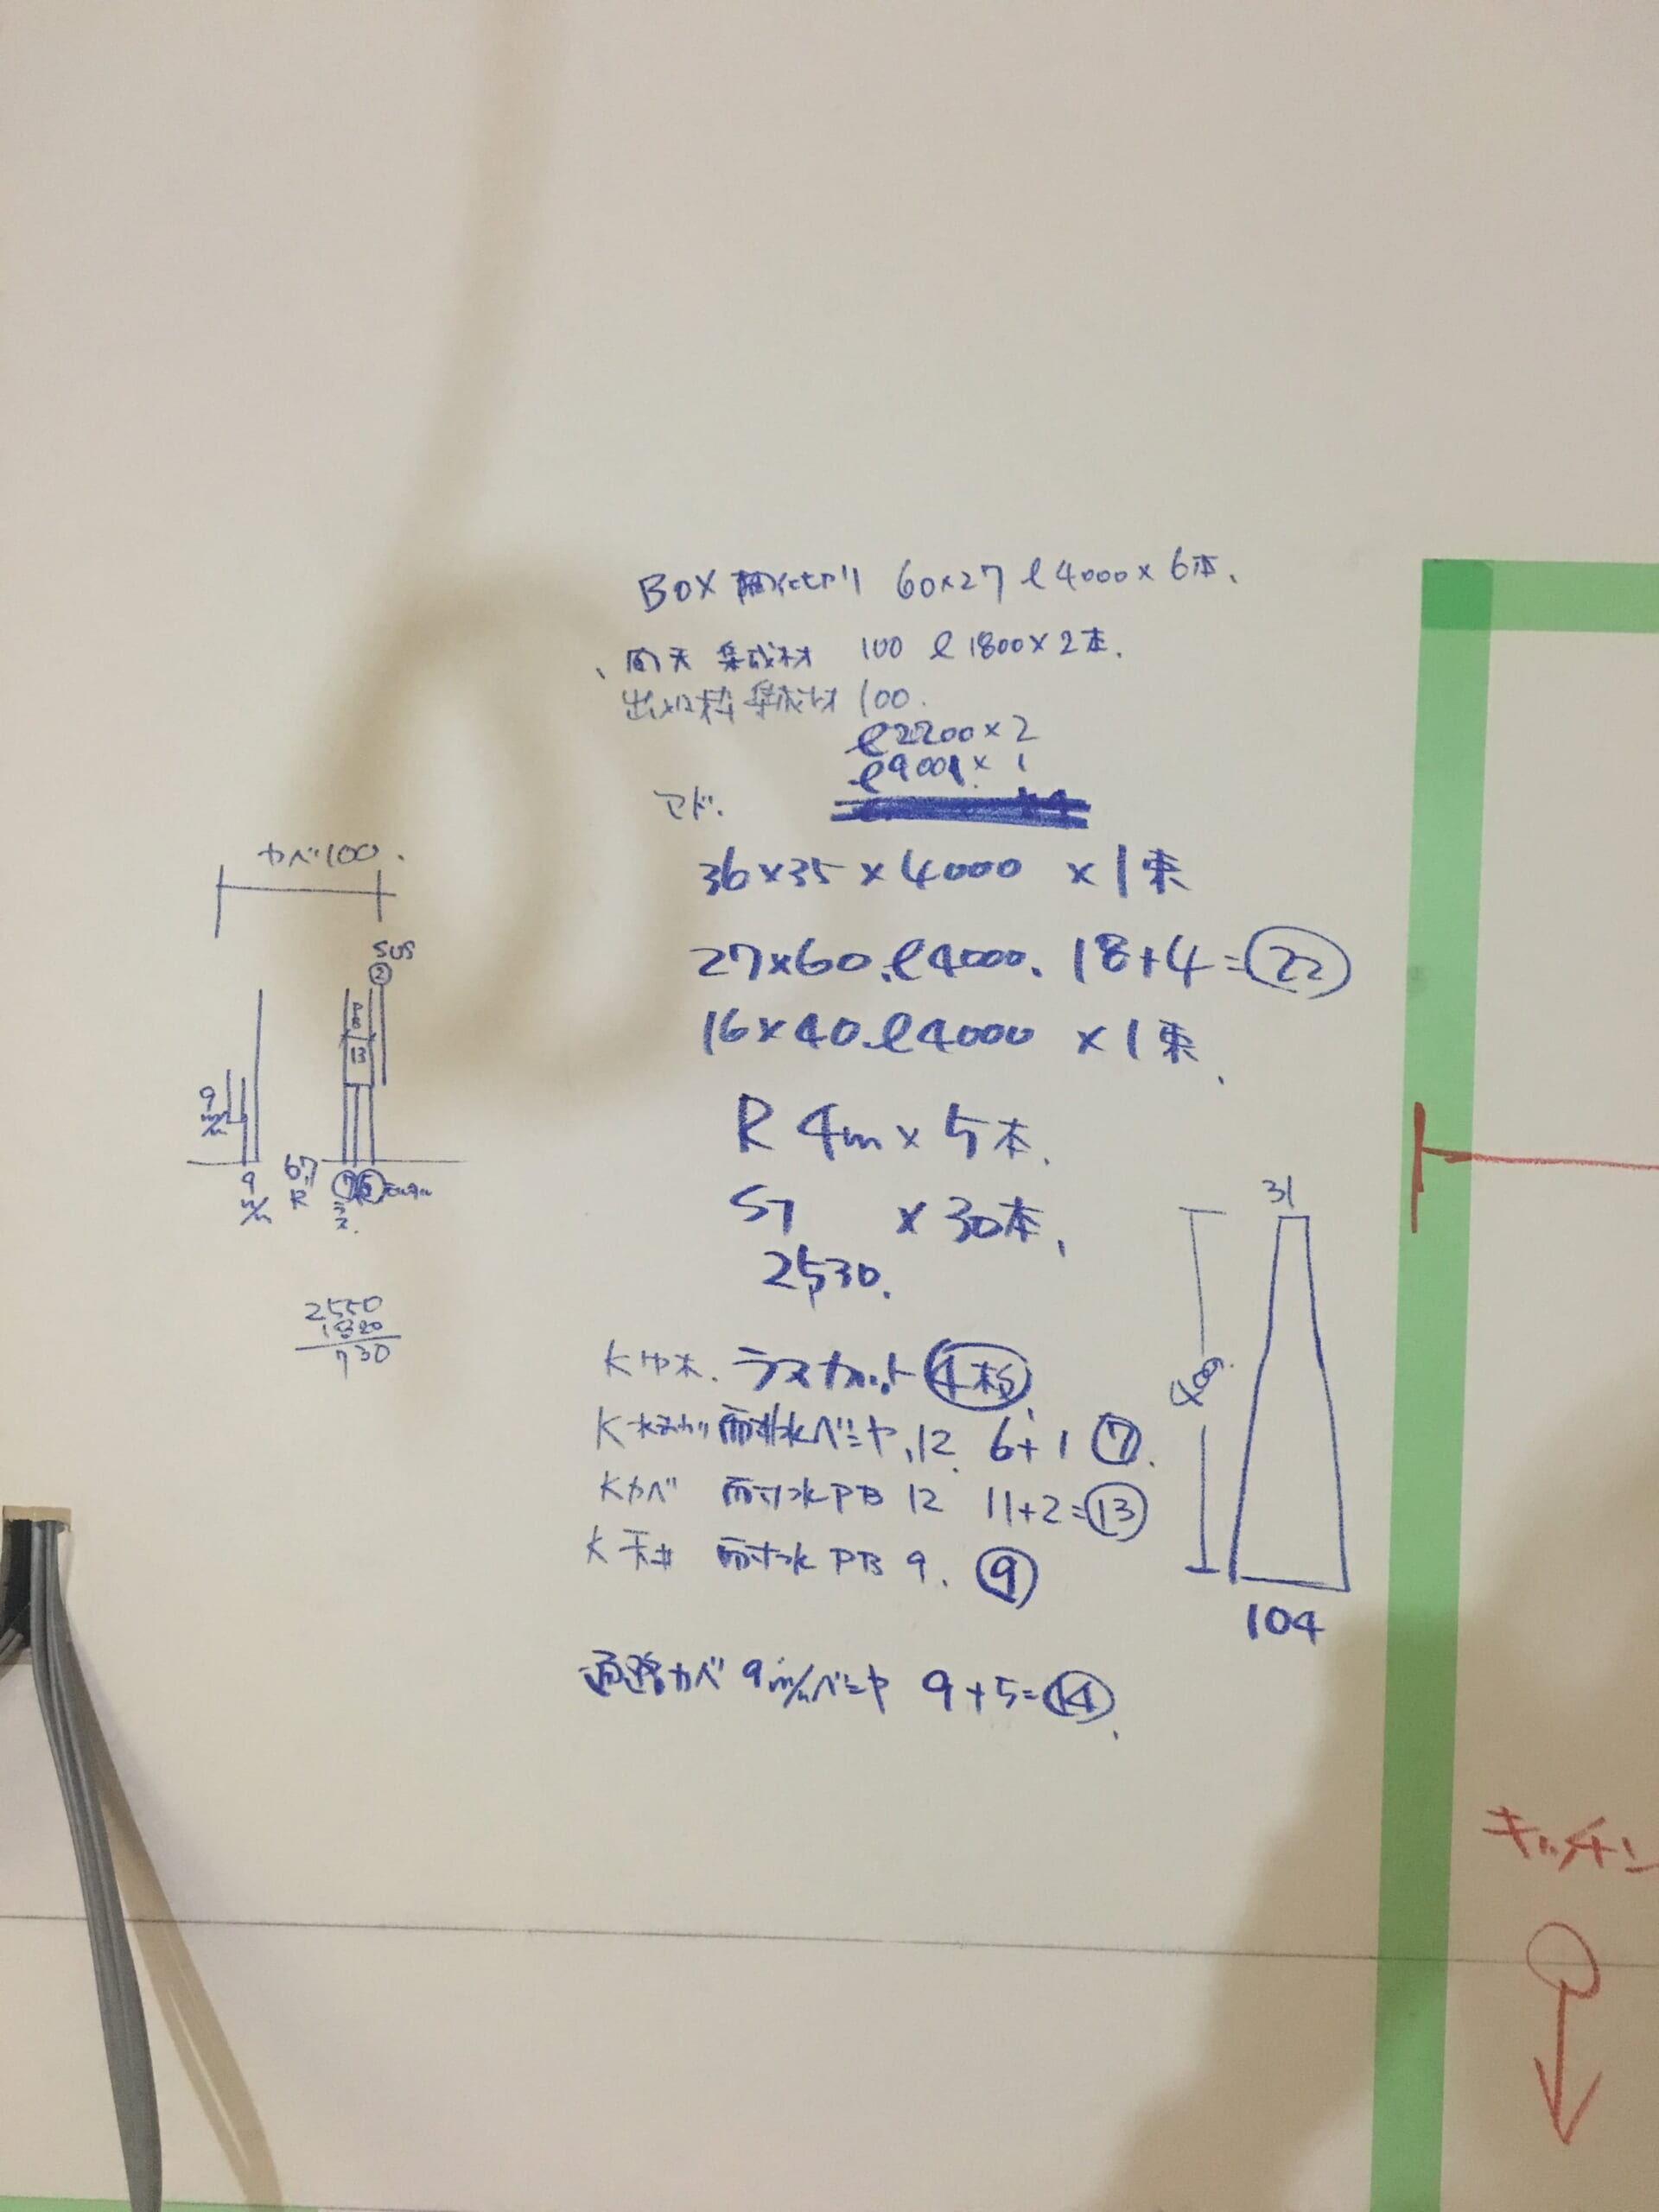 BOX 間仕切り 60×27 ℓ4000×6本、
、向天 集成材 100 ℓ1800×2本.
出入口枠 集成材 100.
ℓ2200×2
ℓ900×1
マド.
36×35×4000 ×1束
27×60.ℓ4000. 18+4=22
16×40.ℓ4000 ×1束
R 4m×5本.
ST ×30本、
2530.
K巾木. ラスカット 4枚
K 耐水ベニヤ.12. 6+1 7.
Kカベ 耐水PB 12 11+2=13
K天井 耐水PB 9. 9
通路カベ 9m/mベニヤ 9+5=14
カベ100.
SUS
2
PB
13
9m/m
9m/m
67
R
2550
1820
730
31
104
キッチン